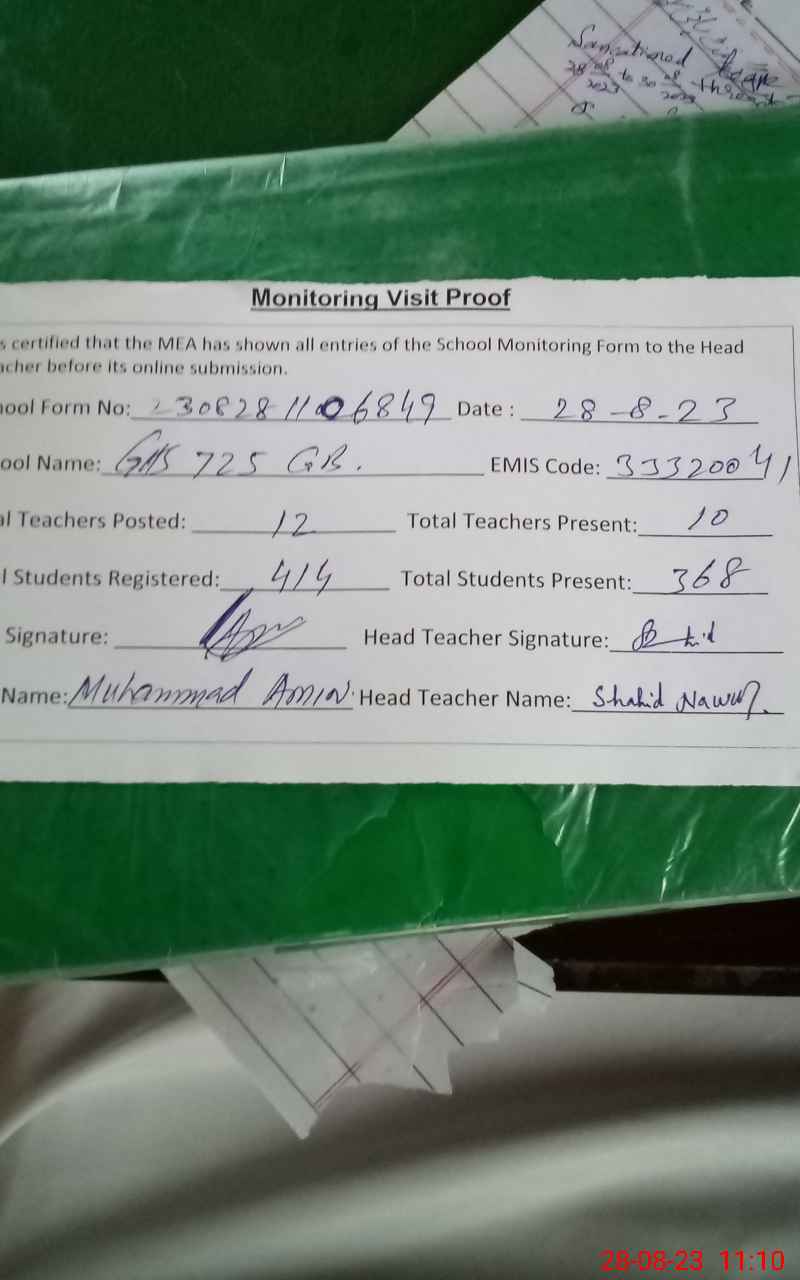 Sanctioned
28/08/2023 to 30/08/2023 through
Monitoring Visit Proof
s certified that the MEA has shown all entries of the School Monitoring Form to the Head
acher before its online submission.
ool Form No: 23082811006849 Date : 28-8-23
ool Name: GHS 725 GB. EMIS Code: 33320041
al Teachers Posted: 12 Total Teachers Present: 10
l Students Registered: 414 Total Students Present: 368
Signature: Head Teacher Signature:
Name: Muhammad Amin. Head Teacher Name: Shahid Nawaz.
28-08-23 11:10